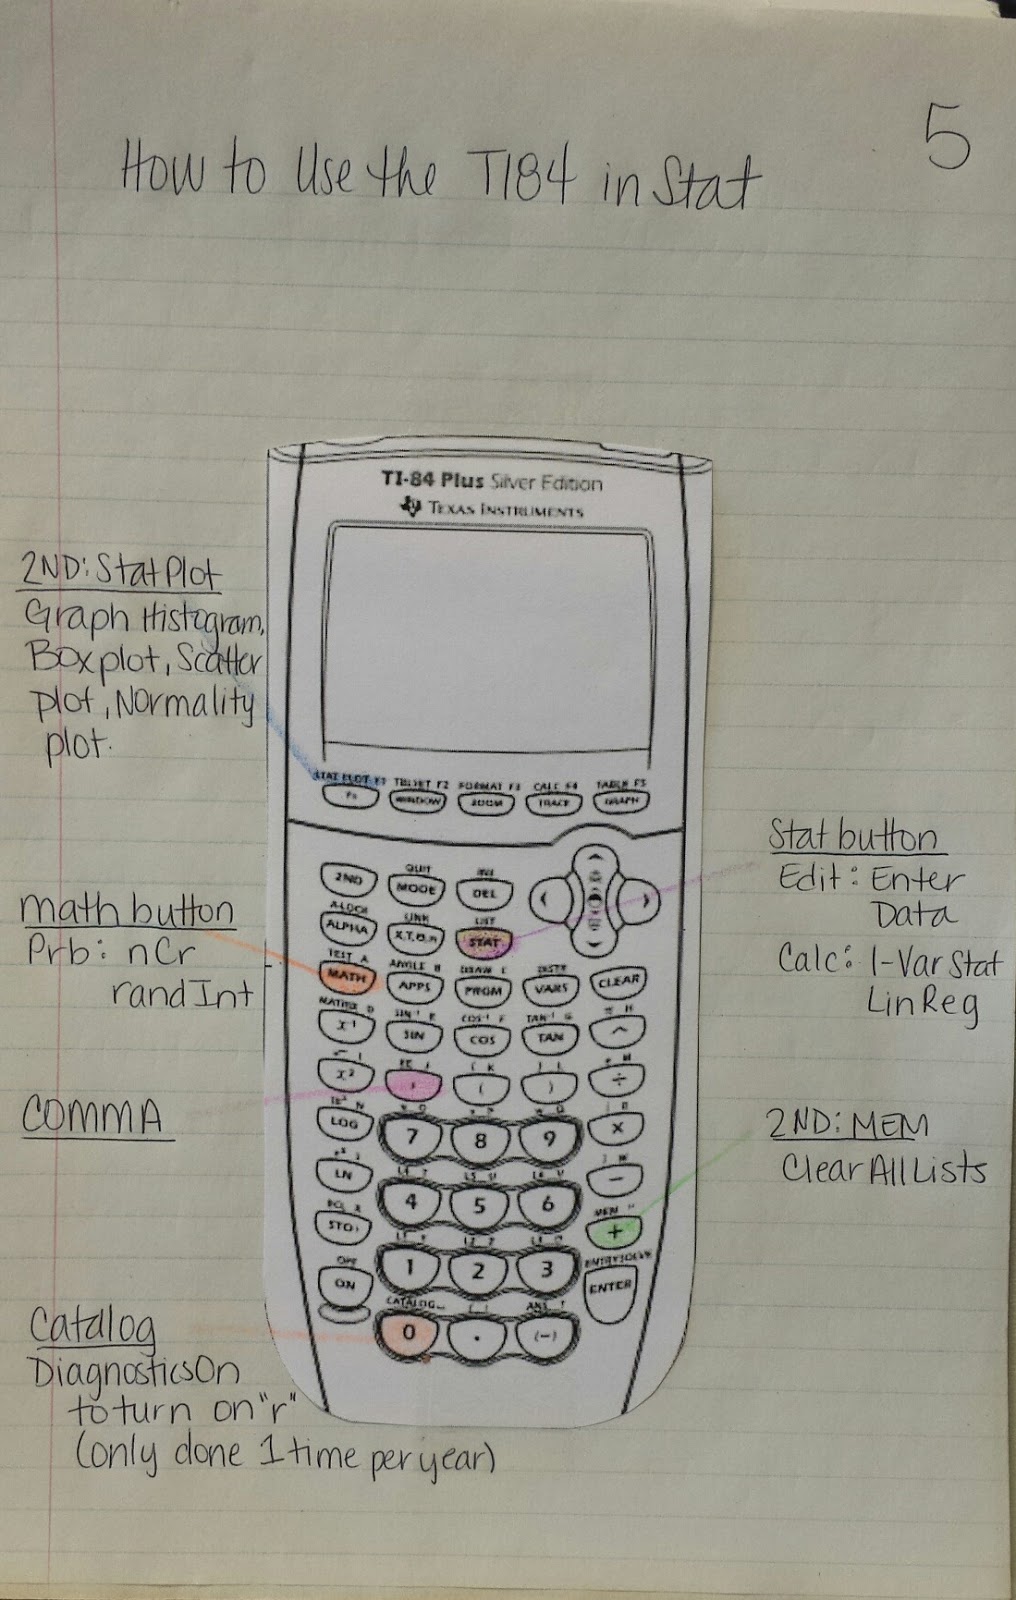 5
How to Use the TI84 in Stat
TI-84 Plus Silver Edition
TEXAS INSTRUMENTS
2ND: StatPlot
Graph Histogram,
Boxplot, Scatter
plot, Normality
plot.
STAT PLOT F1 TBLSET F2 FORMAT F3 CALC F4 TABLE F5
Y= WINDOW ZOOM TRACE GRAPH
Stat button
Edit: Enter
Data
Calc: 1-Var Stat
LinReg
QUIT INS
2ND MODE DEL
A-LOCK LINK LIST
ALPHA X,T,Θ,n STAT
math button
Prb: nCr
randInt
TEST A ANGLE B DRAW C DISTR
MATH APPS PRGM VARS CLEAR
MATRIX D SIN⁻¹ E COS⁻¹ F TAN⁻¹ G π H
X⁻¹ SIN COS TAN ^
EE J { K } L M
X² , ( ) ÷
COMMA
N O P Q R
LOG 7 8 9 ×
2ND: MEM
Clear All Lists
L4 T L5 U L6 V ] W
LN 4 5 6 −
RCL X L1 Y L2 Z L3 MEM "
STO› 1 2 3 +
OFF ENTRY SOLVE
ON ENTER
CATALOG ANS ?
0 . (-)
Catalog
DiagnosticsOn
to turn on "r"
(only done 1 time per year)